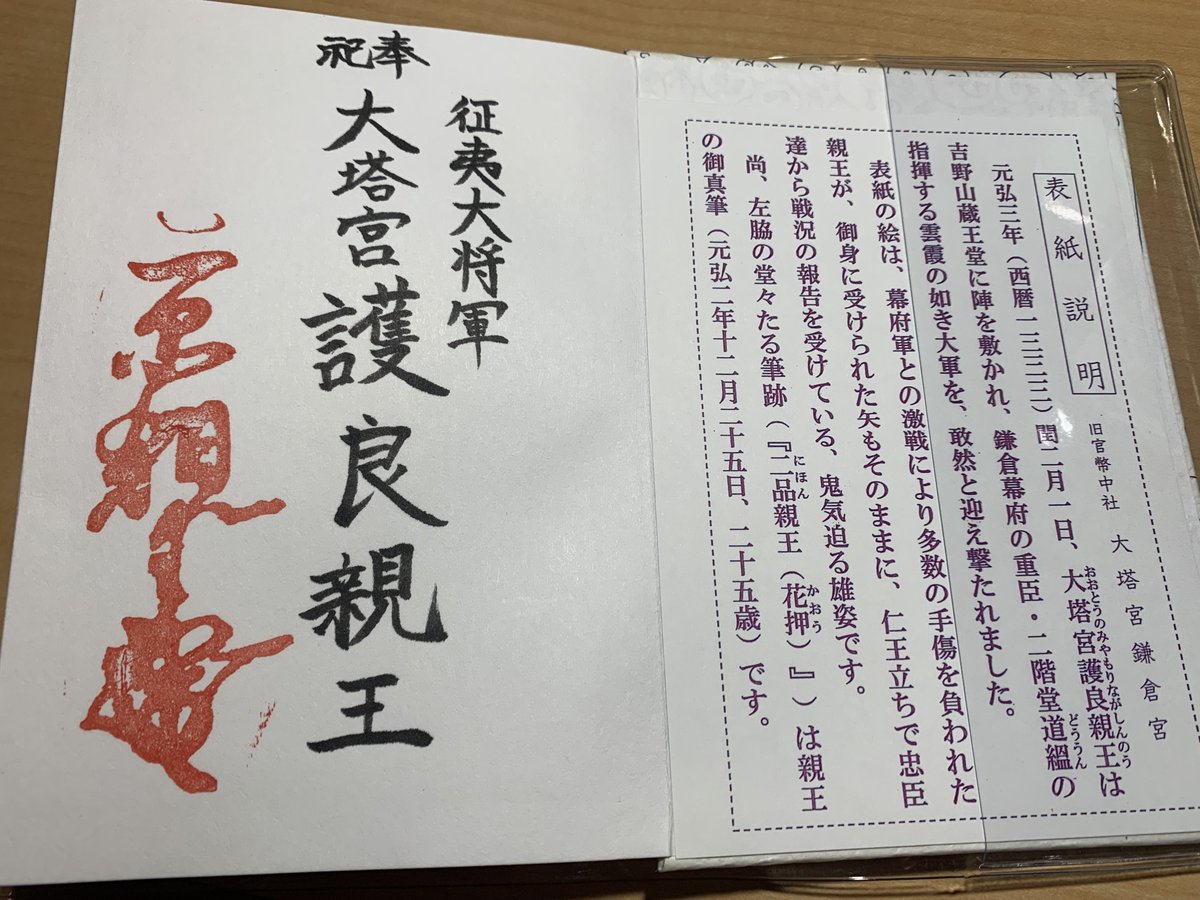 表紙説明
旧官幣中社 大塔宮鎌倉宮
おおとうのみやもりながしんのう
元弘三年（西暦一三三三）閏二月一日、大塔宮護良親王は
どううん
吉野山蔵王堂に陣を敷かれ、鎌倉幕府の重臣・二階堂道縕の
指揮する雲霞の如き大軍を、敢然と迎え撃たれました。
表紙の絵は、幕府軍との激戦により多数の手傷を負われた
親王が、御身に受けられた矢もそのままに、仁王立ちで忠臣
達から戦況の報告を受けている、鬼気迫る雄姿です。
にほん かおう
尚、左脇の堂々たる筆跡（『二品親王（花押）』）は親王
の御真筆（元弘二年十二月二十五日、二十五歳）です。
奉祀
征夷大将軍
大塔宮護良親王